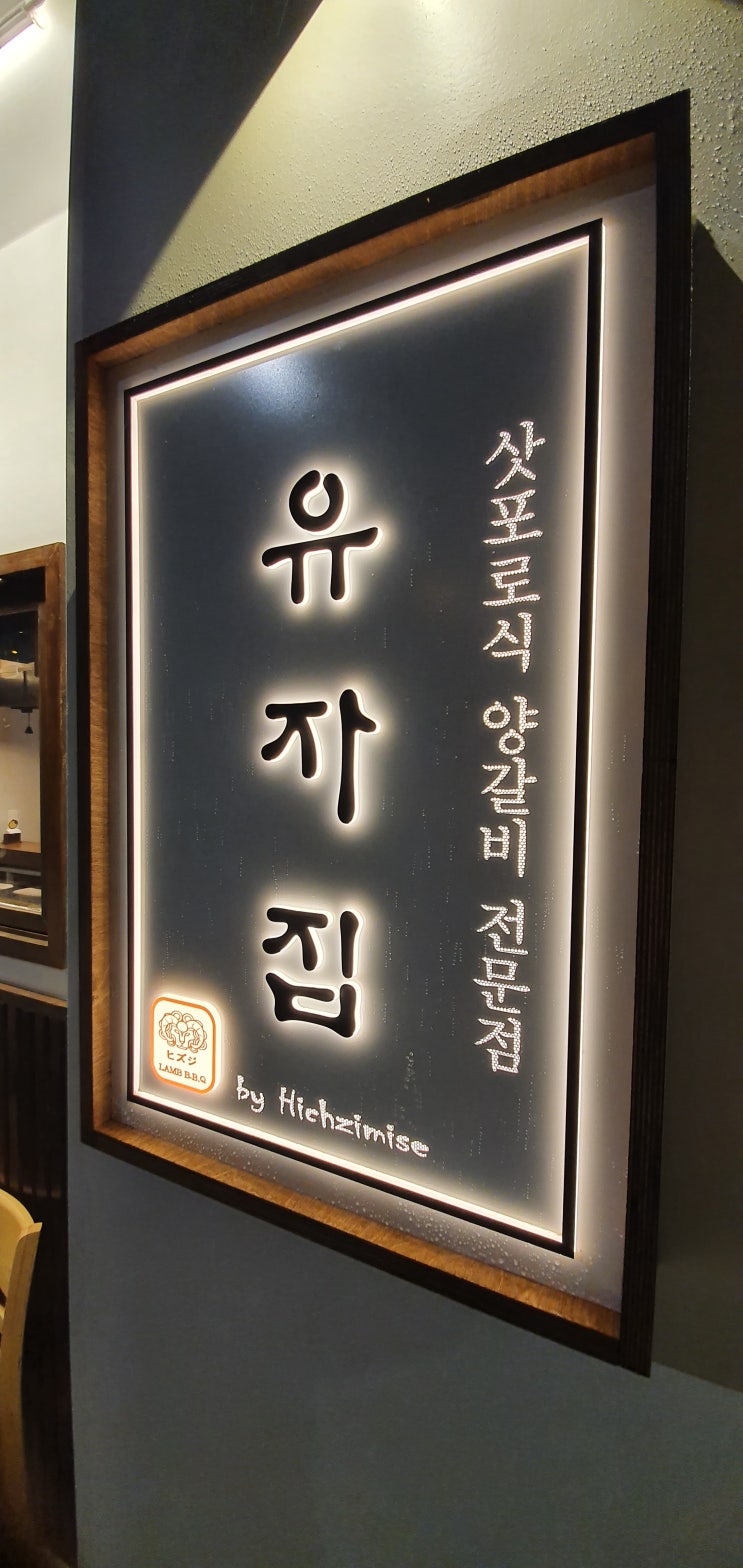 삿포로식 양갈비 전문점
유자집
ヒズジ
LAMB B.B.Q
by Hichzimise